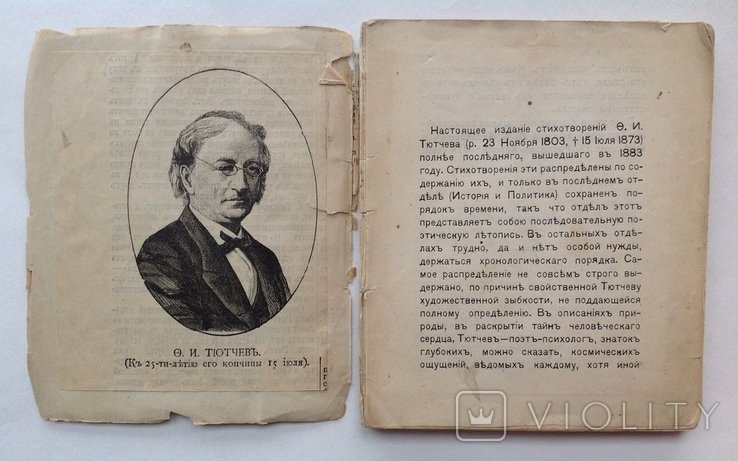 Ѳ. И. ТЮТЧЕВЪ.
(Къ 25-ти-лѣтію его кончины 15 іюля).
Настоящее изданіе стихотвореній Ѳ. И.
Тютчева (р. 23 Ноября 1803, † 15 Іюля 1873)
полнѣе послѣдняго, вышедшаго въ 1883
году. Стихотворенія эти распредѣлены по со-
держанію ихъ, и только въ послѣднемъ от-
дѣлѣ (Исторія и Политика) сохраненъ по-
рядокъ времени, такъ что отдѣлъ этотъ
представляетъ собою послѣдовательную по-
этическую лѣтопись. Въ остальныхъ отдѣ-
лахъ трудно, да и нѣтъ особой нужды,
держаться хронологическаго порядка. Са-
мое распредѣленіе не совсѣмъ строго вы-
держано, по причинѣ свойственной Тютчеву
художественной зыбкости, не поддающейся
полному опредѣленію. Въ описаніяхъ приро-
ды, въ раскрытіи тайнъ человѣческаго
сердца. Тютчевъ—поэтъ-психологъ, знатокъ
глубокихъ, можно сказать, космическихъ
ощущеній, вѣдомыхъ каждому, хотя иной
VIOLITY